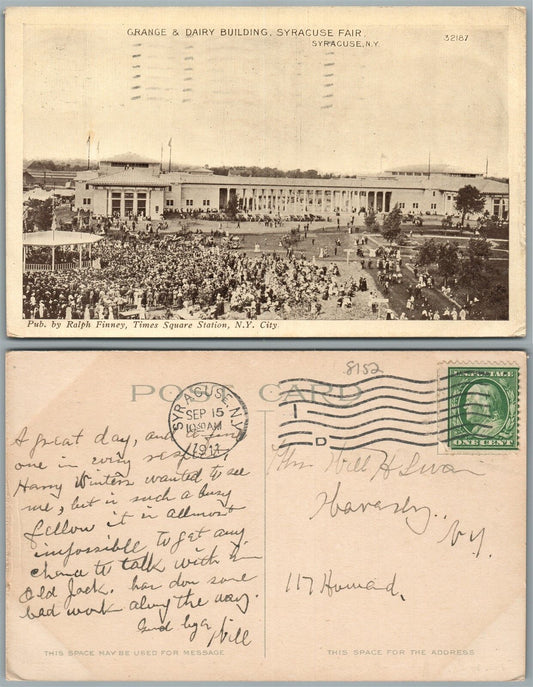 GRANGE & DAIRY BUILDING, SYRACUSE FAIR,
SYRACUSE, N.Y.
32187
Pub. by Ralph Finney, Times Square Station, N.Y. City
8152
POST CARD
SYRACUSE, N.Y.
SEP 15
1030 AM
1911
1
D
U.S. POSTAGE
ONE CENT
A great day, and a fine
one in every respect,
Harry Winters wanted to see
me, but is such a busy
fellow it is allmost
impossible to get any
chance to talk with him
Old Jack. has don some
bad work along the way.
Good bye
Will
Mrs Will H Swain
Waverly.
N.Y.
117 Howard.
THIS SPACE MAY BE USED FOR MESSAGE
THIS SPACE FOR THE ADDRESS